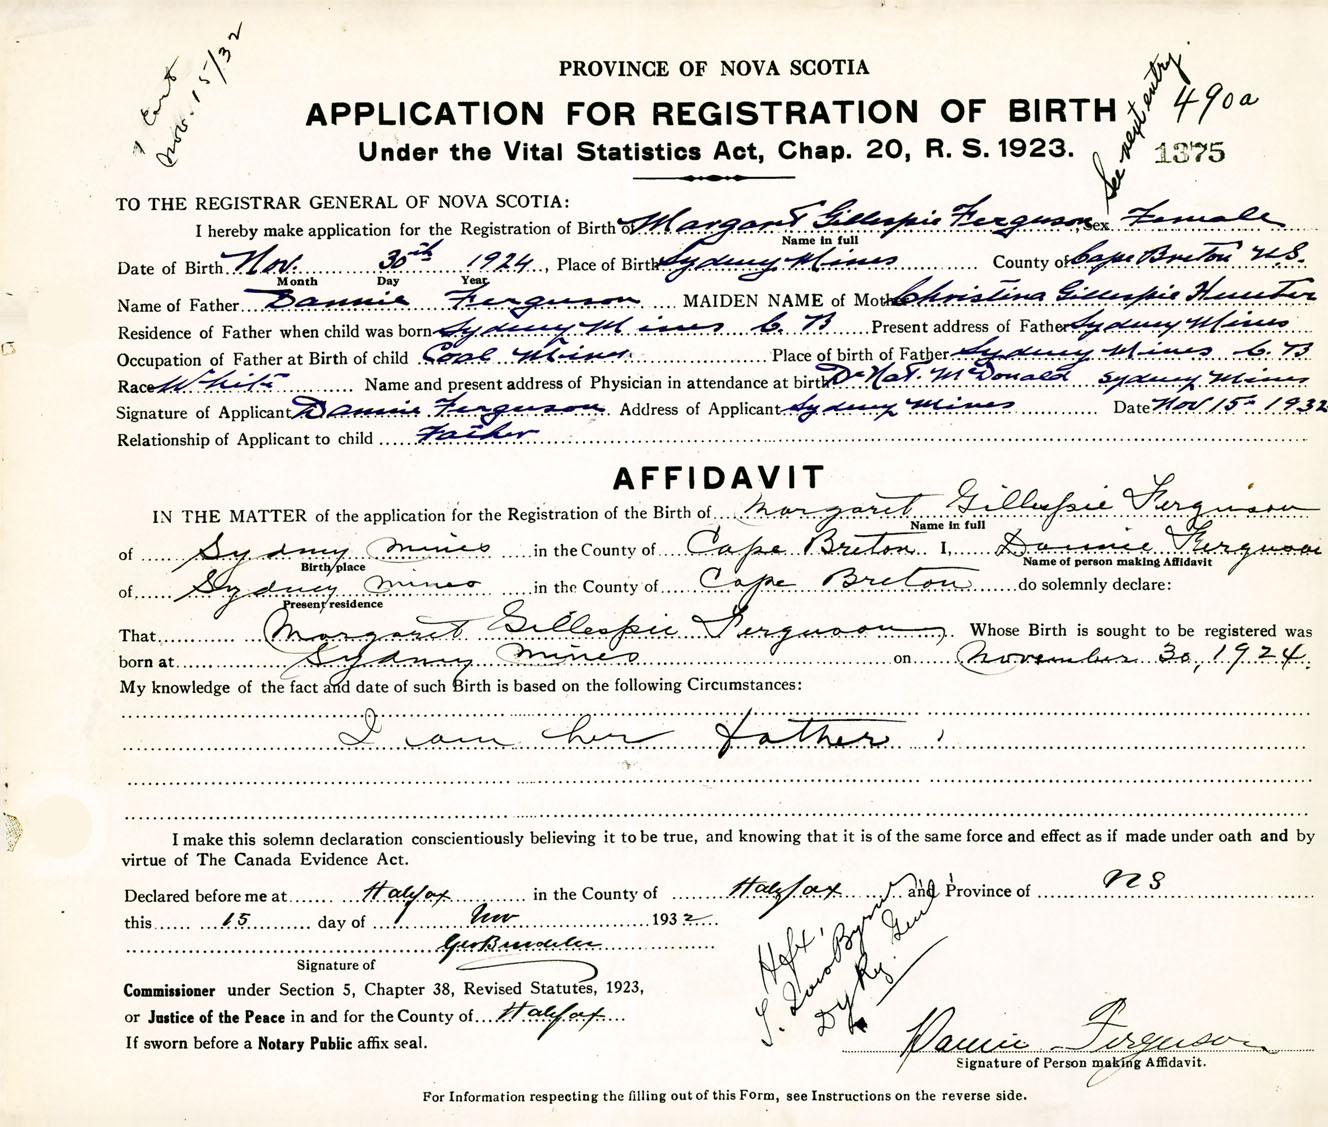 1 Cert
Nov. 15/32
PROVINCE OF NOVA SCOTIA
APPLICATION FOR REGISTRATION OF BIRTH
Under the Vital Statistics Act, Chap. 20, R. S. 1923.
See next entry.
490a
1375
TO THE REGISTRAR GENERAL OF NOVA SCOTIA:
I hereby make application for the Registration of Birth of Margaret Gillespie Ferguson Sex Female
Name in full
Date of Birth Nov. 30th 1924, Place of Birth Sydney Mines County of Cape Breton N.S.
Month Day Year
Name of Father Dannie Ferguson MAIDEN NAME of Mother Christina Gillespie Hunter
Residence of Father when child was born Sydney Mines C. B Present address of Father Sydney Mines
Occupation of Father at Birth of child Coal Miner Place of birth of Father Sydney Mines C. B
Race White Name and present address of Physician in attendance at birth Dr Nat. McDonald Sydney Mines
Signature of Applicant Dannie Ferguson. Address of Applicant Sydney Mines Date Nov 15th 1932
Relationship of Applicant to child Father
AFFIDAVIT
IN THE MATTER of the application for the Registration of the Birth of Margaret Gillespie Ferguson
Name in full
of Sydney Mines in the County of Cape Breton I, Dannie Ferguson
Birth place Name of person making Affidavit
of Sydney Mines in the County of Cape Breton do solemnly declare:
Present residence
That Margaret Gillespie Ferguson, Whose Birth is sought to be registered was
born at Sydney Mines on November 30, 1924.
My knowledge of the fact and date of such Birth is based on the following Circumstances:
I am her father.
I make this solemn declaration conscientiously believing it to be true, and knowing that it is of the same force and effect as if made under oath and by
virtue of The Canada Evidence Act.
Declared before me at Halifax in the County of Halifax and Province of N S
this 15 day of Nov 1932
Signature of
Commissioner under Section 5, Chapter 38, Revised Statutes, 1923,
or Justice of the Peace in and for the County of Halifax
If sworn before a Notary Public affix seal.
Hfx
Dy Reg. Genl
Dannie Ferguson
Signature of Person making Affidavit.
For Information respecting the filling out of this Form, see Instructions on the reverse side.